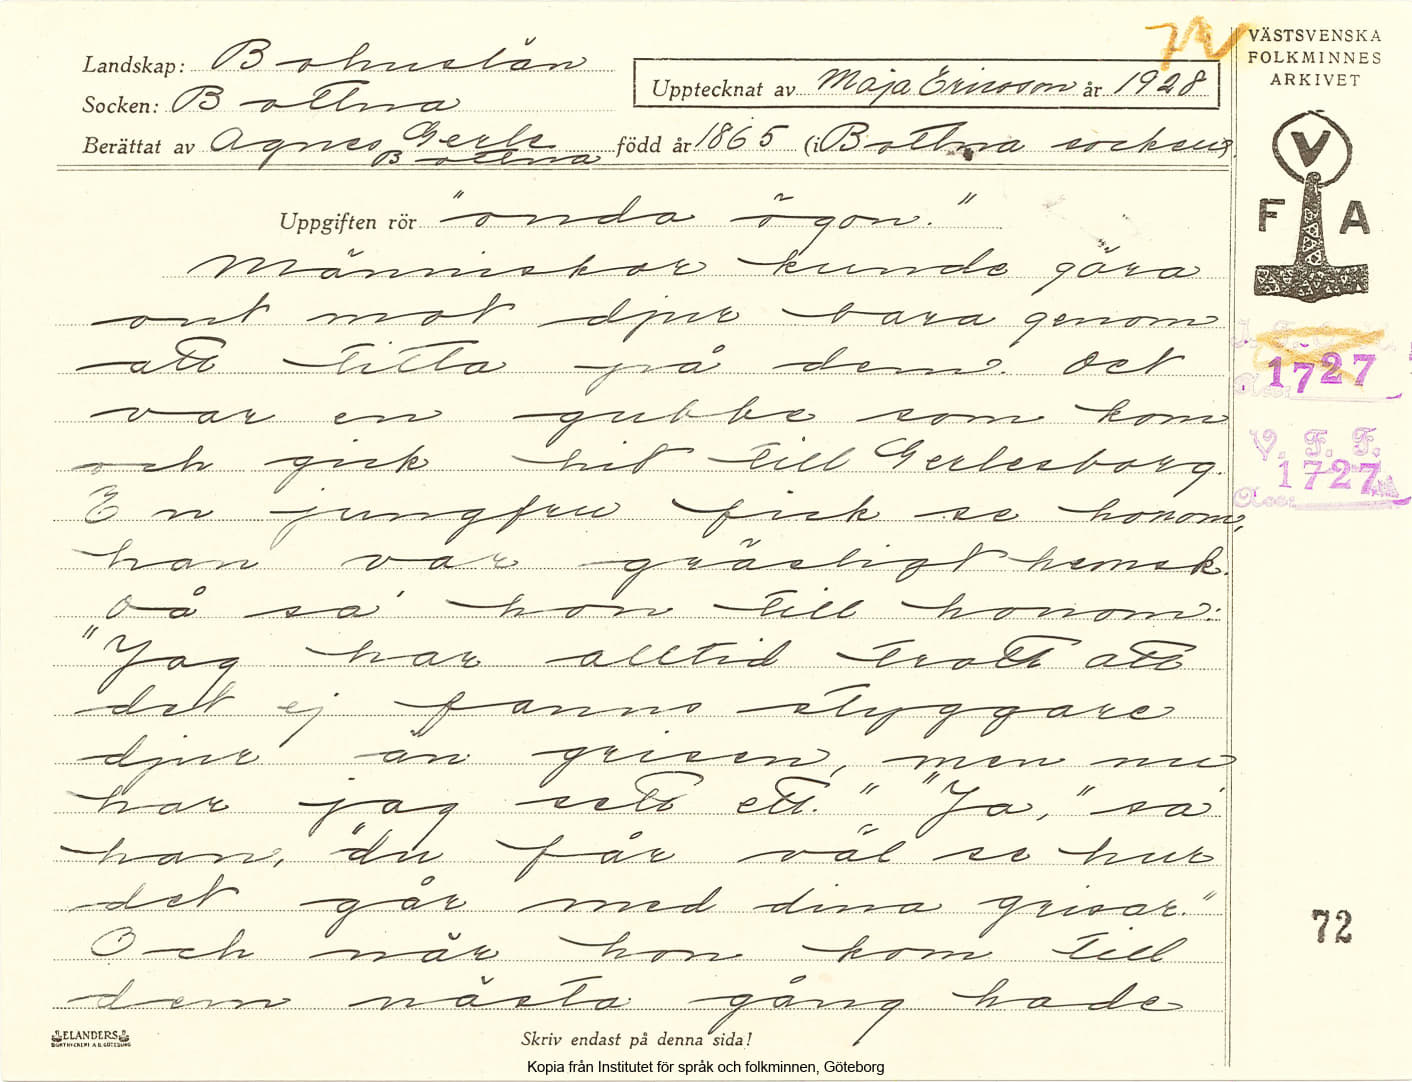 72
VÄSTSVENSKA
FOLKMINNES
ARKIVET
Landskap: Bohuslän
Upptecknat av Maja Ericsson år 1928
Socken: Bottna
Berättat av Agnes Gerle född år 1865 (i Bottna socken)
Bottna
V
F A
Uppgiften rör "onda ögon."
Människor kunde göra
ont mot djur bara genom
att titta på dem. Det
var en gubbe som kom
och gick hit till Gerlesborg.
En jungfru fick se honom,
han var gräsligt hemsk.
Då sa' hon till honom:
"Jag har alltid trott att
det ej fanns styggare
djur än grisen, men nu
har jag sett ett." "Ja," sa'
han, "du får väl se hur
det går med dina grisar."
Och när hon kom till
dem nästa gång hade
1727
V. F. F.
1727
Acc:
72
ELANDERS
Skriv endast på denna sida!
Kopia från Institutet för språk och folkminnen, Göteborg